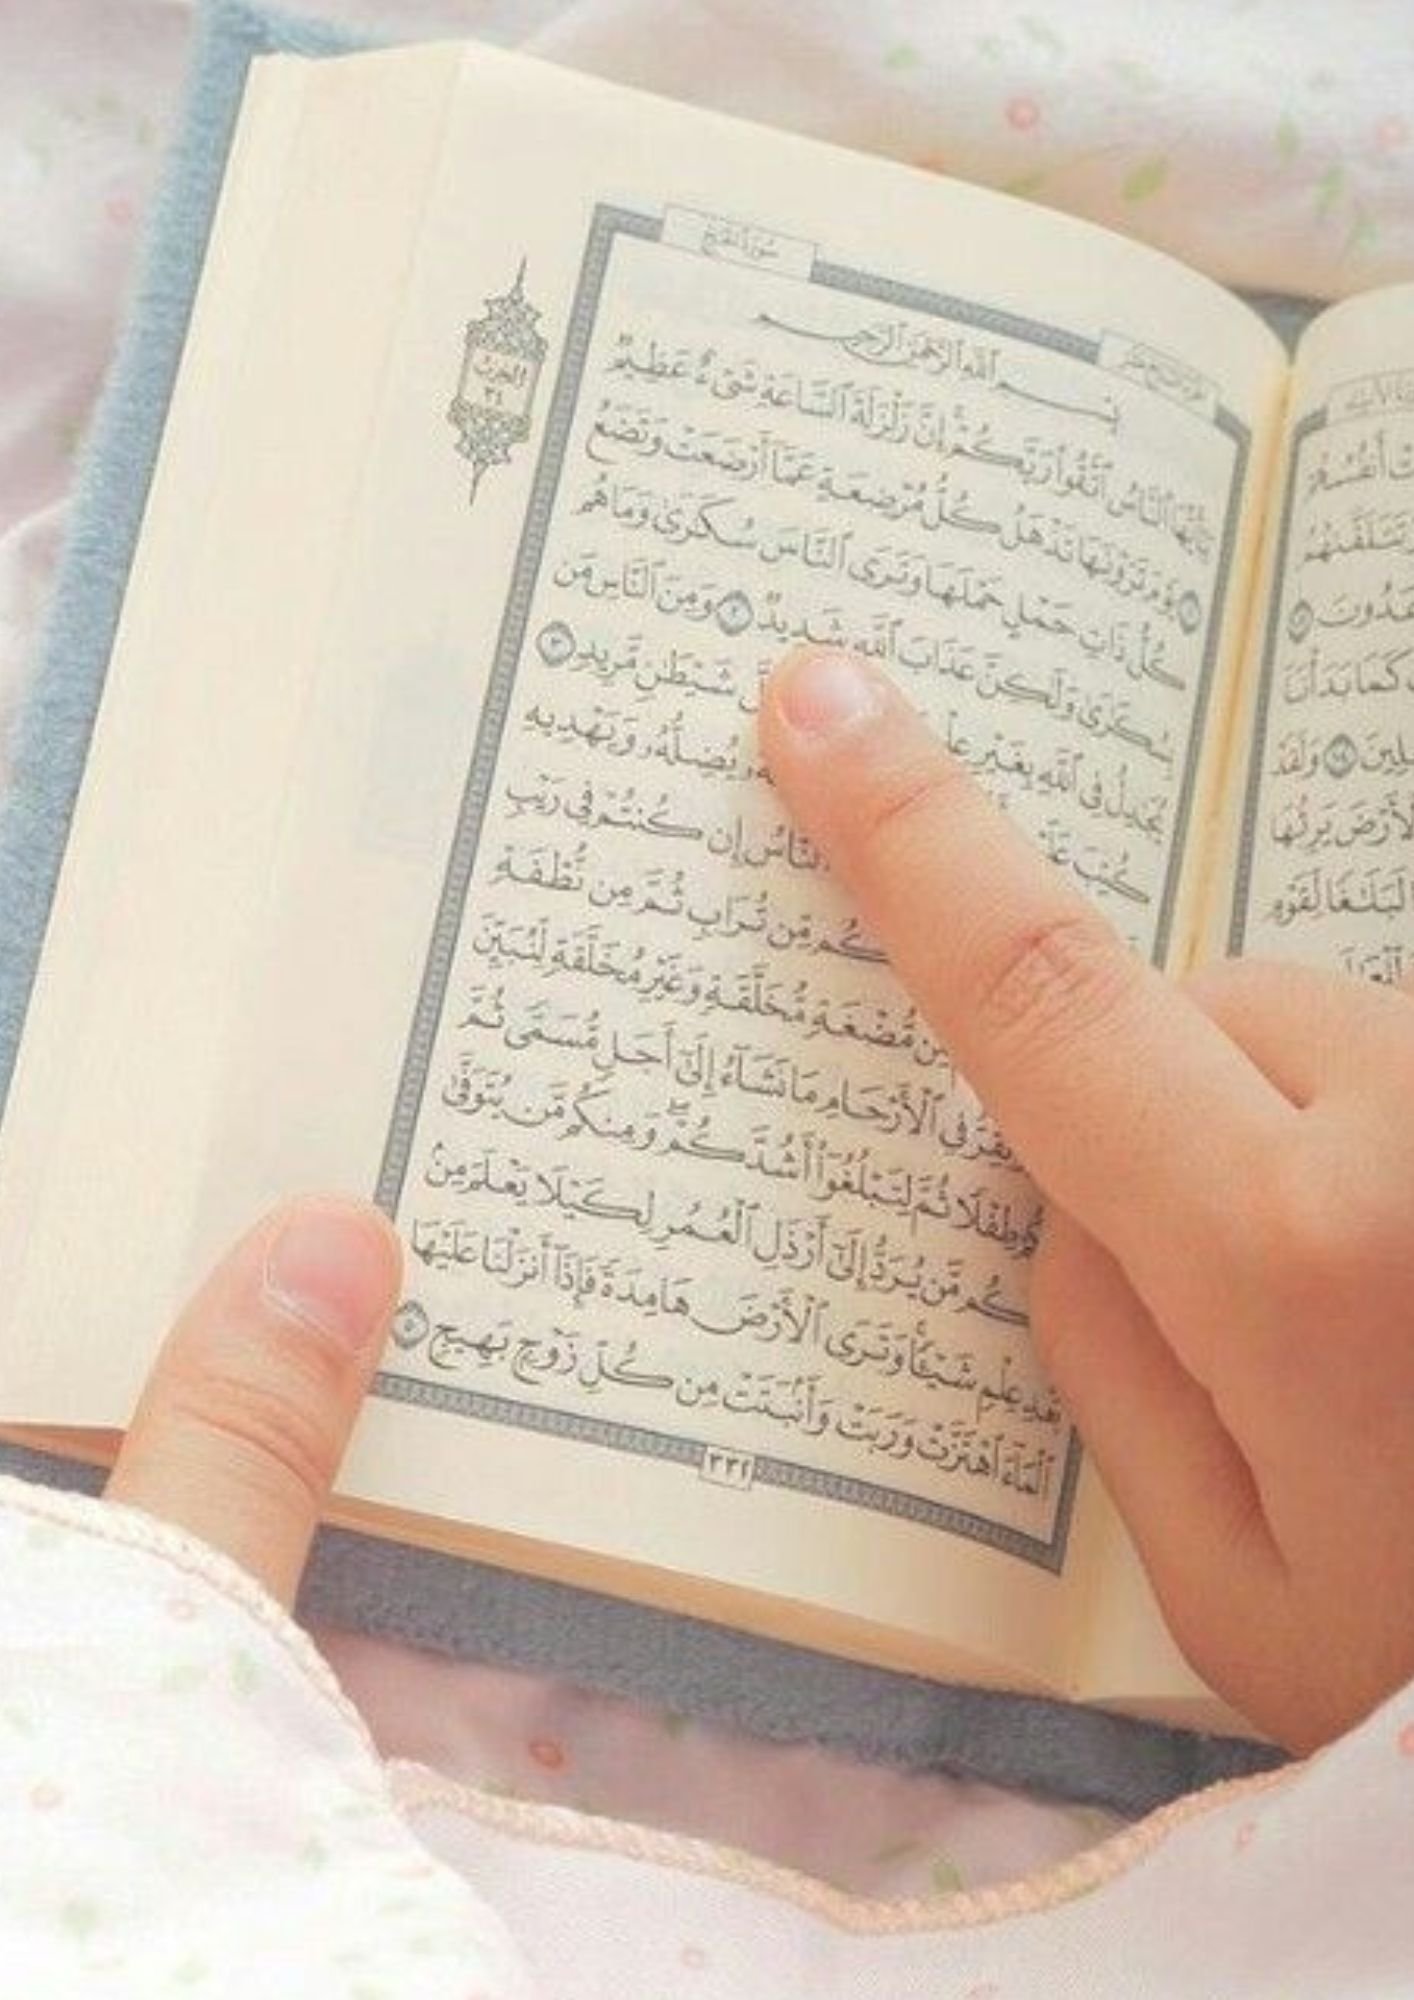 سورة الحج
الجزء السابع عشر
الحزب
٣٤
بِسْمِ ٱللَّهِ ٱلرَّحْمَٰنِ ٱلرَّحِيمِ
يَٰٓأَيُّهَا ٱلنَّاسُ ٱتَّقُوا۟ رَبَّكُمْ إِنَّ زَلْزَلَةَ ٱلسَّاعَةِ شَىْءٌ عَظِيمٌ
١ يَوْمَ تَرَوْنَهَا تَذْهَلُ كُلُّ مُرْضِعَةٍ عَمَّآ أَرْضَعَتْ وَتَضَعُ
كُلُّ ذَاتِ حَمْلٍ حَمْلَهَا وَتَرَى ٱلنَّاسَ سُكَٰرَىٰ وَمَا هُم
بِسُكَٰرَىٰ وَلَٰكِنَّ عَذَابَ ٱللَّهِ شَدِيدٌ ٢ وَمِنَ ٱلنَّاسِ مَن
يُجَٰدِلُ فِى ٱللَّهِ بِغَيْرِ شَيْطَٰنٍ مَّرِيدٍ ٣
كُتِبَ وَيُضِلُّهُۥ وَيَهْدِيهِ
إِن كُنتُمْ فِى رَيْبٍ
مِّن تُرَابٍ ثُمَّ مِن نُّطْفَةٍ
مُّضْغَةٍ مُّخَلَّقَةٍ وَغَيْرِ مُخَلَّقَةٍ لِّنُبَيِّنَ
فِى ٱلْأَرْحَامِ مَا نَشَآءُ إِلَىٰٓ أَجَلٍ مُّسَمًّى ثُمَّ
طِفْلًا ثُمَّ لِتَبْلُغُوٓا۟ أَشُدَّكُمْ وَمِنكُم مَّن يُتَوَفَّىٰ
مَّن يُرَدُّ إِلَىٰٓ أَرْذَلِ ٱلْعُمُرِ لِكَيْلَا يَعْلَمَ مِنۢ
بَعْدِ عِلْمٍ شَيْـًٔا وَتَرَى ٱلْأَرْضَ هَامِدَةً فَإِذَآ أَنزَلْنَا عَلَيْهَا
ٱلْمَآءَ ٱهْتَزَّتْ وَرَبَتْ وَأَنۢبَتَتْ مِن كُلِّ زَوْجٍۭ بَهِيجٍ ٥
٣٣٢
أَنفُسُهُمْ
وَتَتَلَقَّىٰهُمُ
كَمَا بَدَأْنَآ
وَلَقَدْ
ٱلْأَرْضَ يَرِثُهَا
لَبَلَٰغًا لِّقَوْمٍ